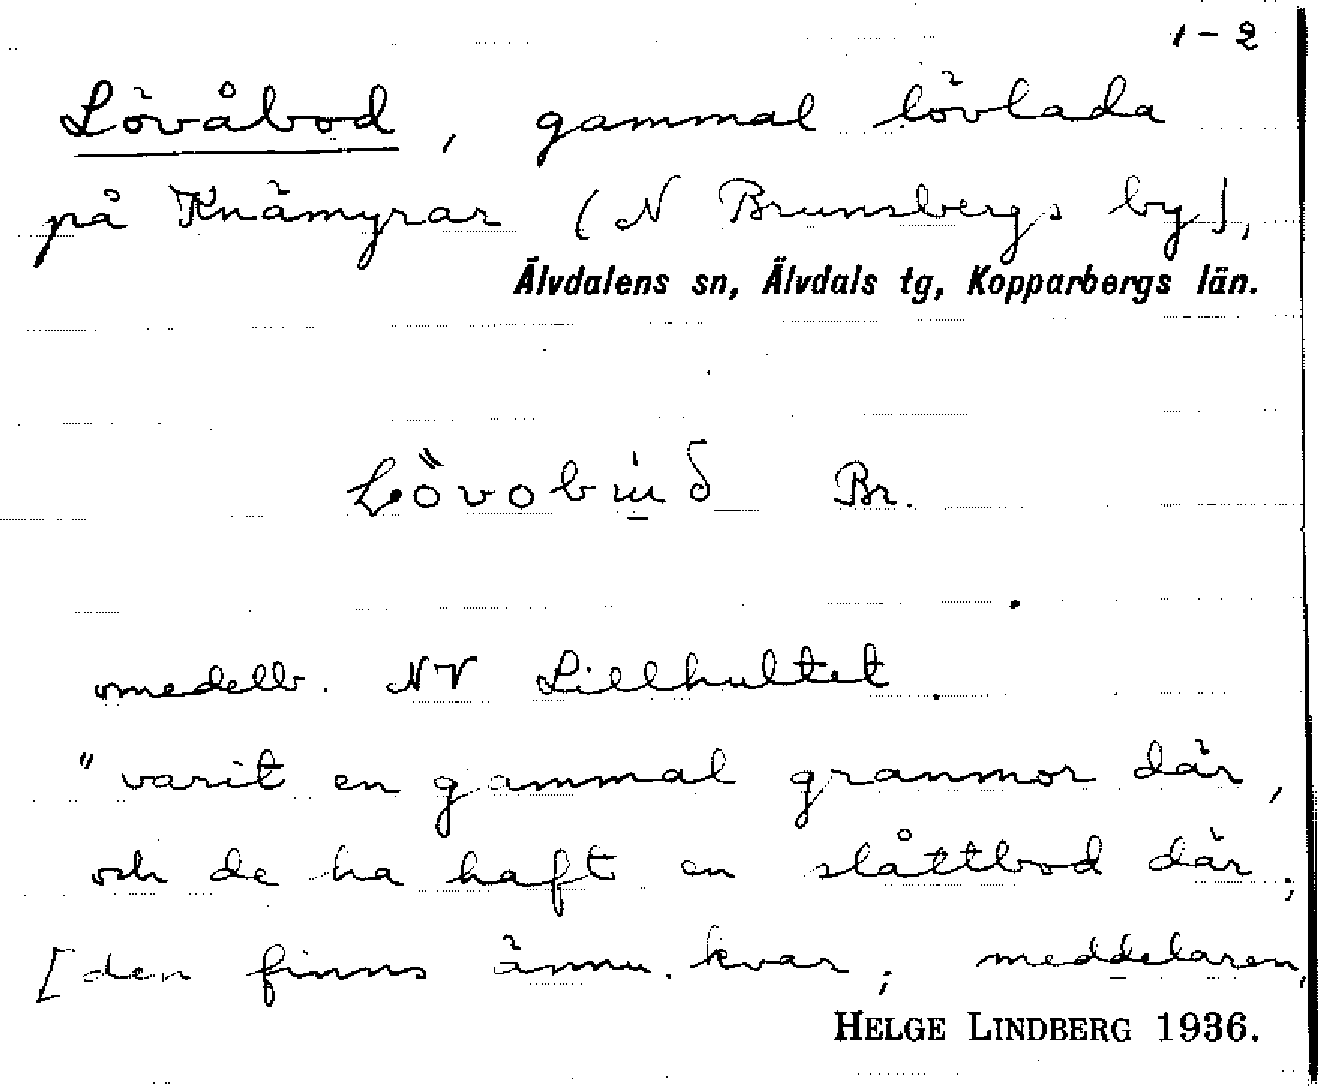 1-2
Lövåbod, gammal lövlada
på Knämyrar (N Brunsbergs by),
Älvdalens sn, Älvdals tg, Kopparbergs län.
Br.
omedelb. NV Lillhultet.
"varit en gammal granmor där,
och de ha haft en slåttbod där;
[den finns ännu kvar; meddelaren,
HELGE LINDBERG 1936.